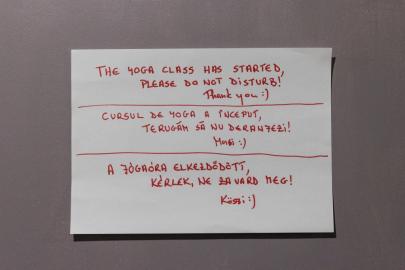 THE YOGA CLASS HAS STARTED,
PLEASE DO NOT DISTURB!
Thank you :)
CURSUL DE YOGA A ÎNCEPUT,
TERUGĂM SĂ NU DERANJEZI!
Mersi :)
A JÓGAÓRA ELKEZDŐDÖTT,
KÉRLEK, NE ZAVARD MEG!
Köszi :)